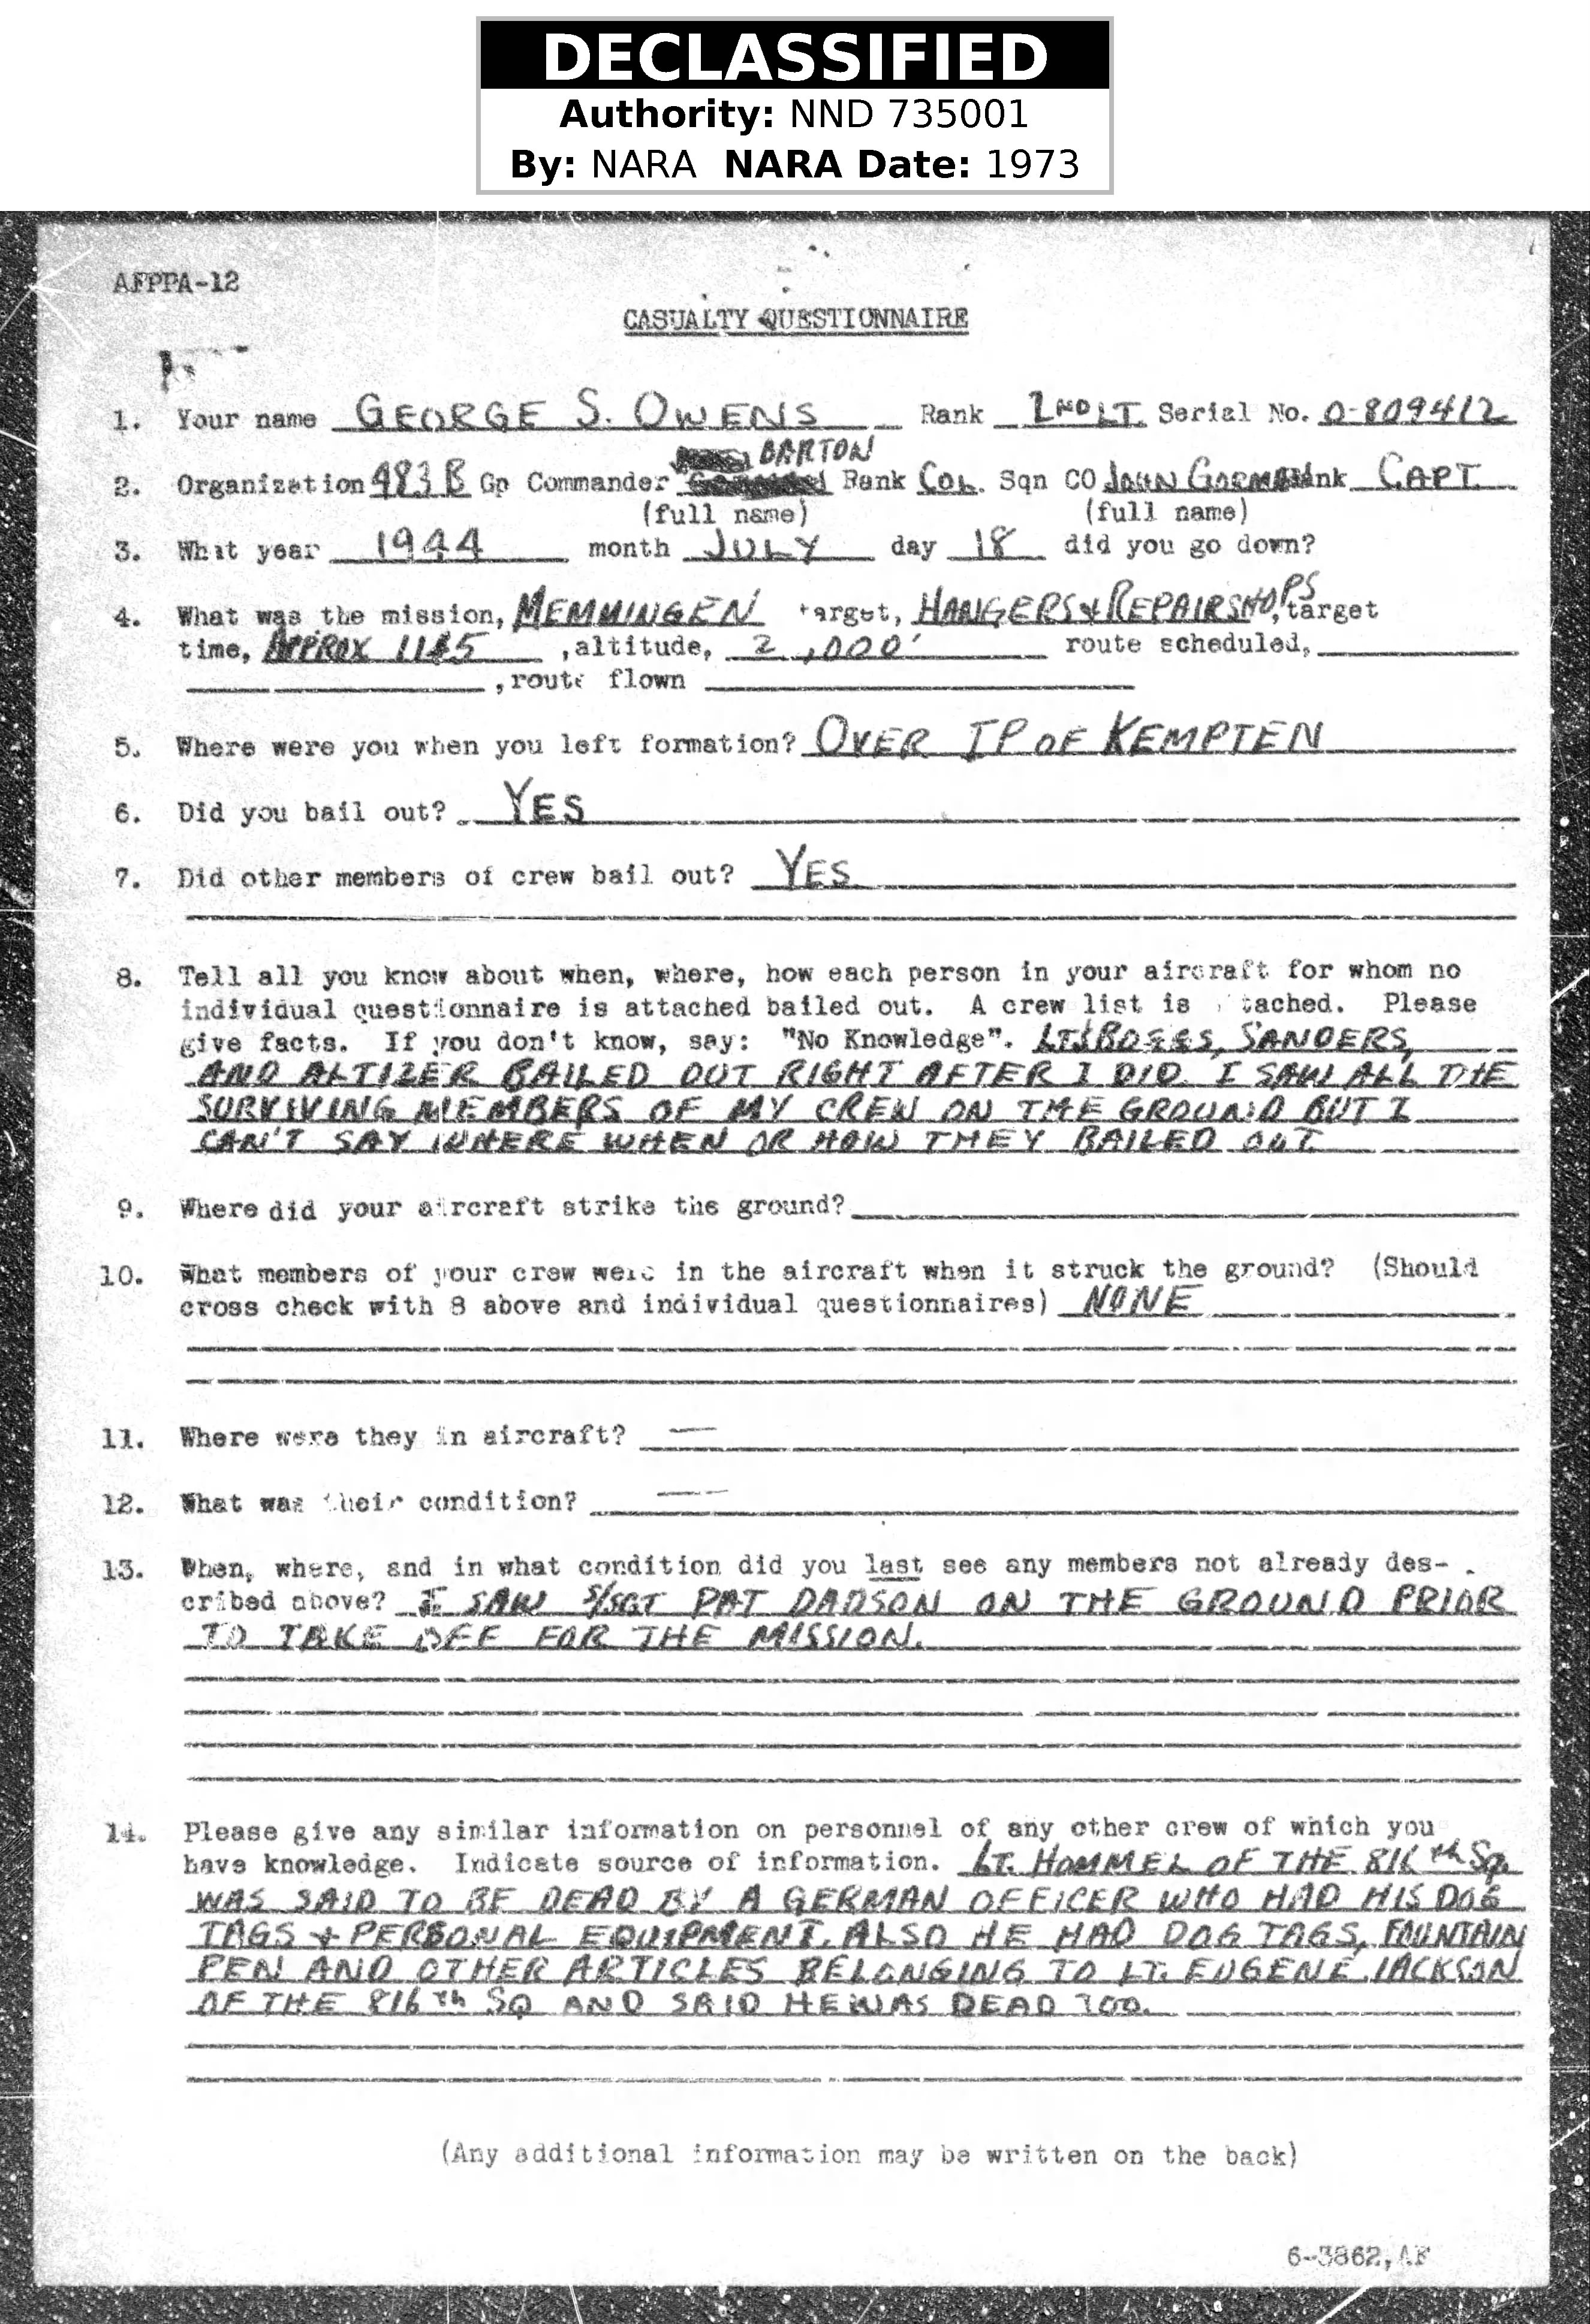 DECLASSIFIED
Authority: NND 735001
By: NARA NARA Date: 1973
AFPPA-12
CASUALTY QUESTIONNAIRE
1. Your name GEORGE S. OWENS Rank 2ND LT. Serial No. O-809412
BARTON
2. Organization 483 B Gp Commander Rank COL. Sqn CO JOHN GORMAN Rank CAPT.
(full name) (full name)
3. What year 1944 month JULY day 18 did you go down?
4. What was the mission, MEMMINGEN target, HANGERS & REPAIRSHOPS, target
time, APPROX 1145, altitude, 2 ,000' route scheduled,
, route flown
5. Where were you when you left formation? OVER IP OF KEMPTEN
6. Did you bail out? YES
7. Did other members of crew bail out? YES
8. Tell all you know about when, where, how each person in your aircraft for whom no
individual questionnaire is attached bailed out. A crew list is attached. Please
give facts. If you don't know, say: "No Knowledge". LTS BOGGS, SANDERS,
AND ALTIZER BAILED OUT RIGHT AFTER I DID. I SAW ALL THE
SURVIVING MEMBERS OF MY CREW ON THE GROUND BUT I
CAN'T SAY WHERE WHEN OR HOW THEY BAILED OUT
9. Where did your aircraft strike the ground?
10. What members of your crew were in the aircraft when it struck the ground? (Should
cross check with 8 above and individual questionnaires) NONE
11. Where were they in aircraft? —
12. What was their condition? —
13. When, where, and in what condition did you last see any members not already des-
cribed above? I SAW S/SGT PAT DADSON ON THE GROUND PRIOR
TO TAKE OFF FOR THE MISSION.
14. Please give any similar information on personnel of any other crew of which you
have knowledge. Indicate source of information. LT. HOMMEL OF THE 816th Sq.
WAS SAID TO BE DEAD BY A GERMAN OFFICER WHO HAD HIS DOG
TAGS & PERSONAL EQUIPMENT. ALSO HE HAD DOG TAGS, FOUNTAIN
PEN AND OTHER ARTICLES BELONGING TO LT. EUGENE JACKSON
OF THE 816th SQ AND SAID HE WAS DEAD TOO.
(Any additional information may be written on the back)
6-3862, AF